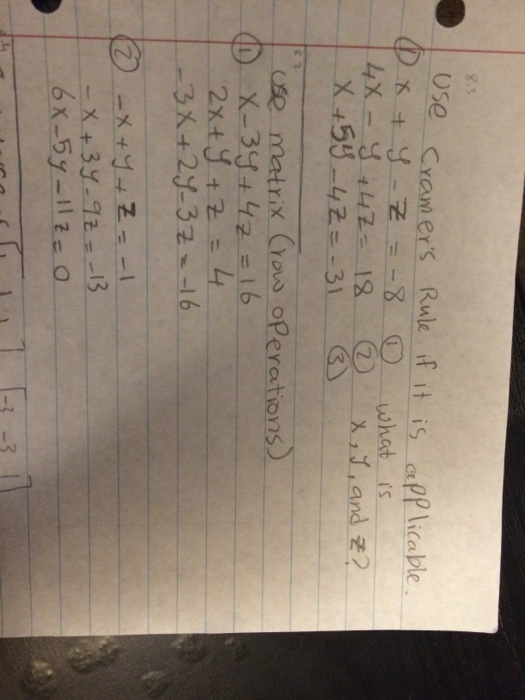 8.3
Use Cramer's Rule if it is applicable.
① x + y - z = -8 ① what is
4x - y + 4z = 18 ② x, y, and z?
x + 5y - 4z = -31 ③
8.2
Use matrix (row operations)
① x - 3y + 4z = 16
2x + y + z = 4
-3x + 2y - 3z = -16
② -x + y + z = -1
-x + 3y - 9z = -13
6x - 5y - 11z = 0
[-3 -3 1]